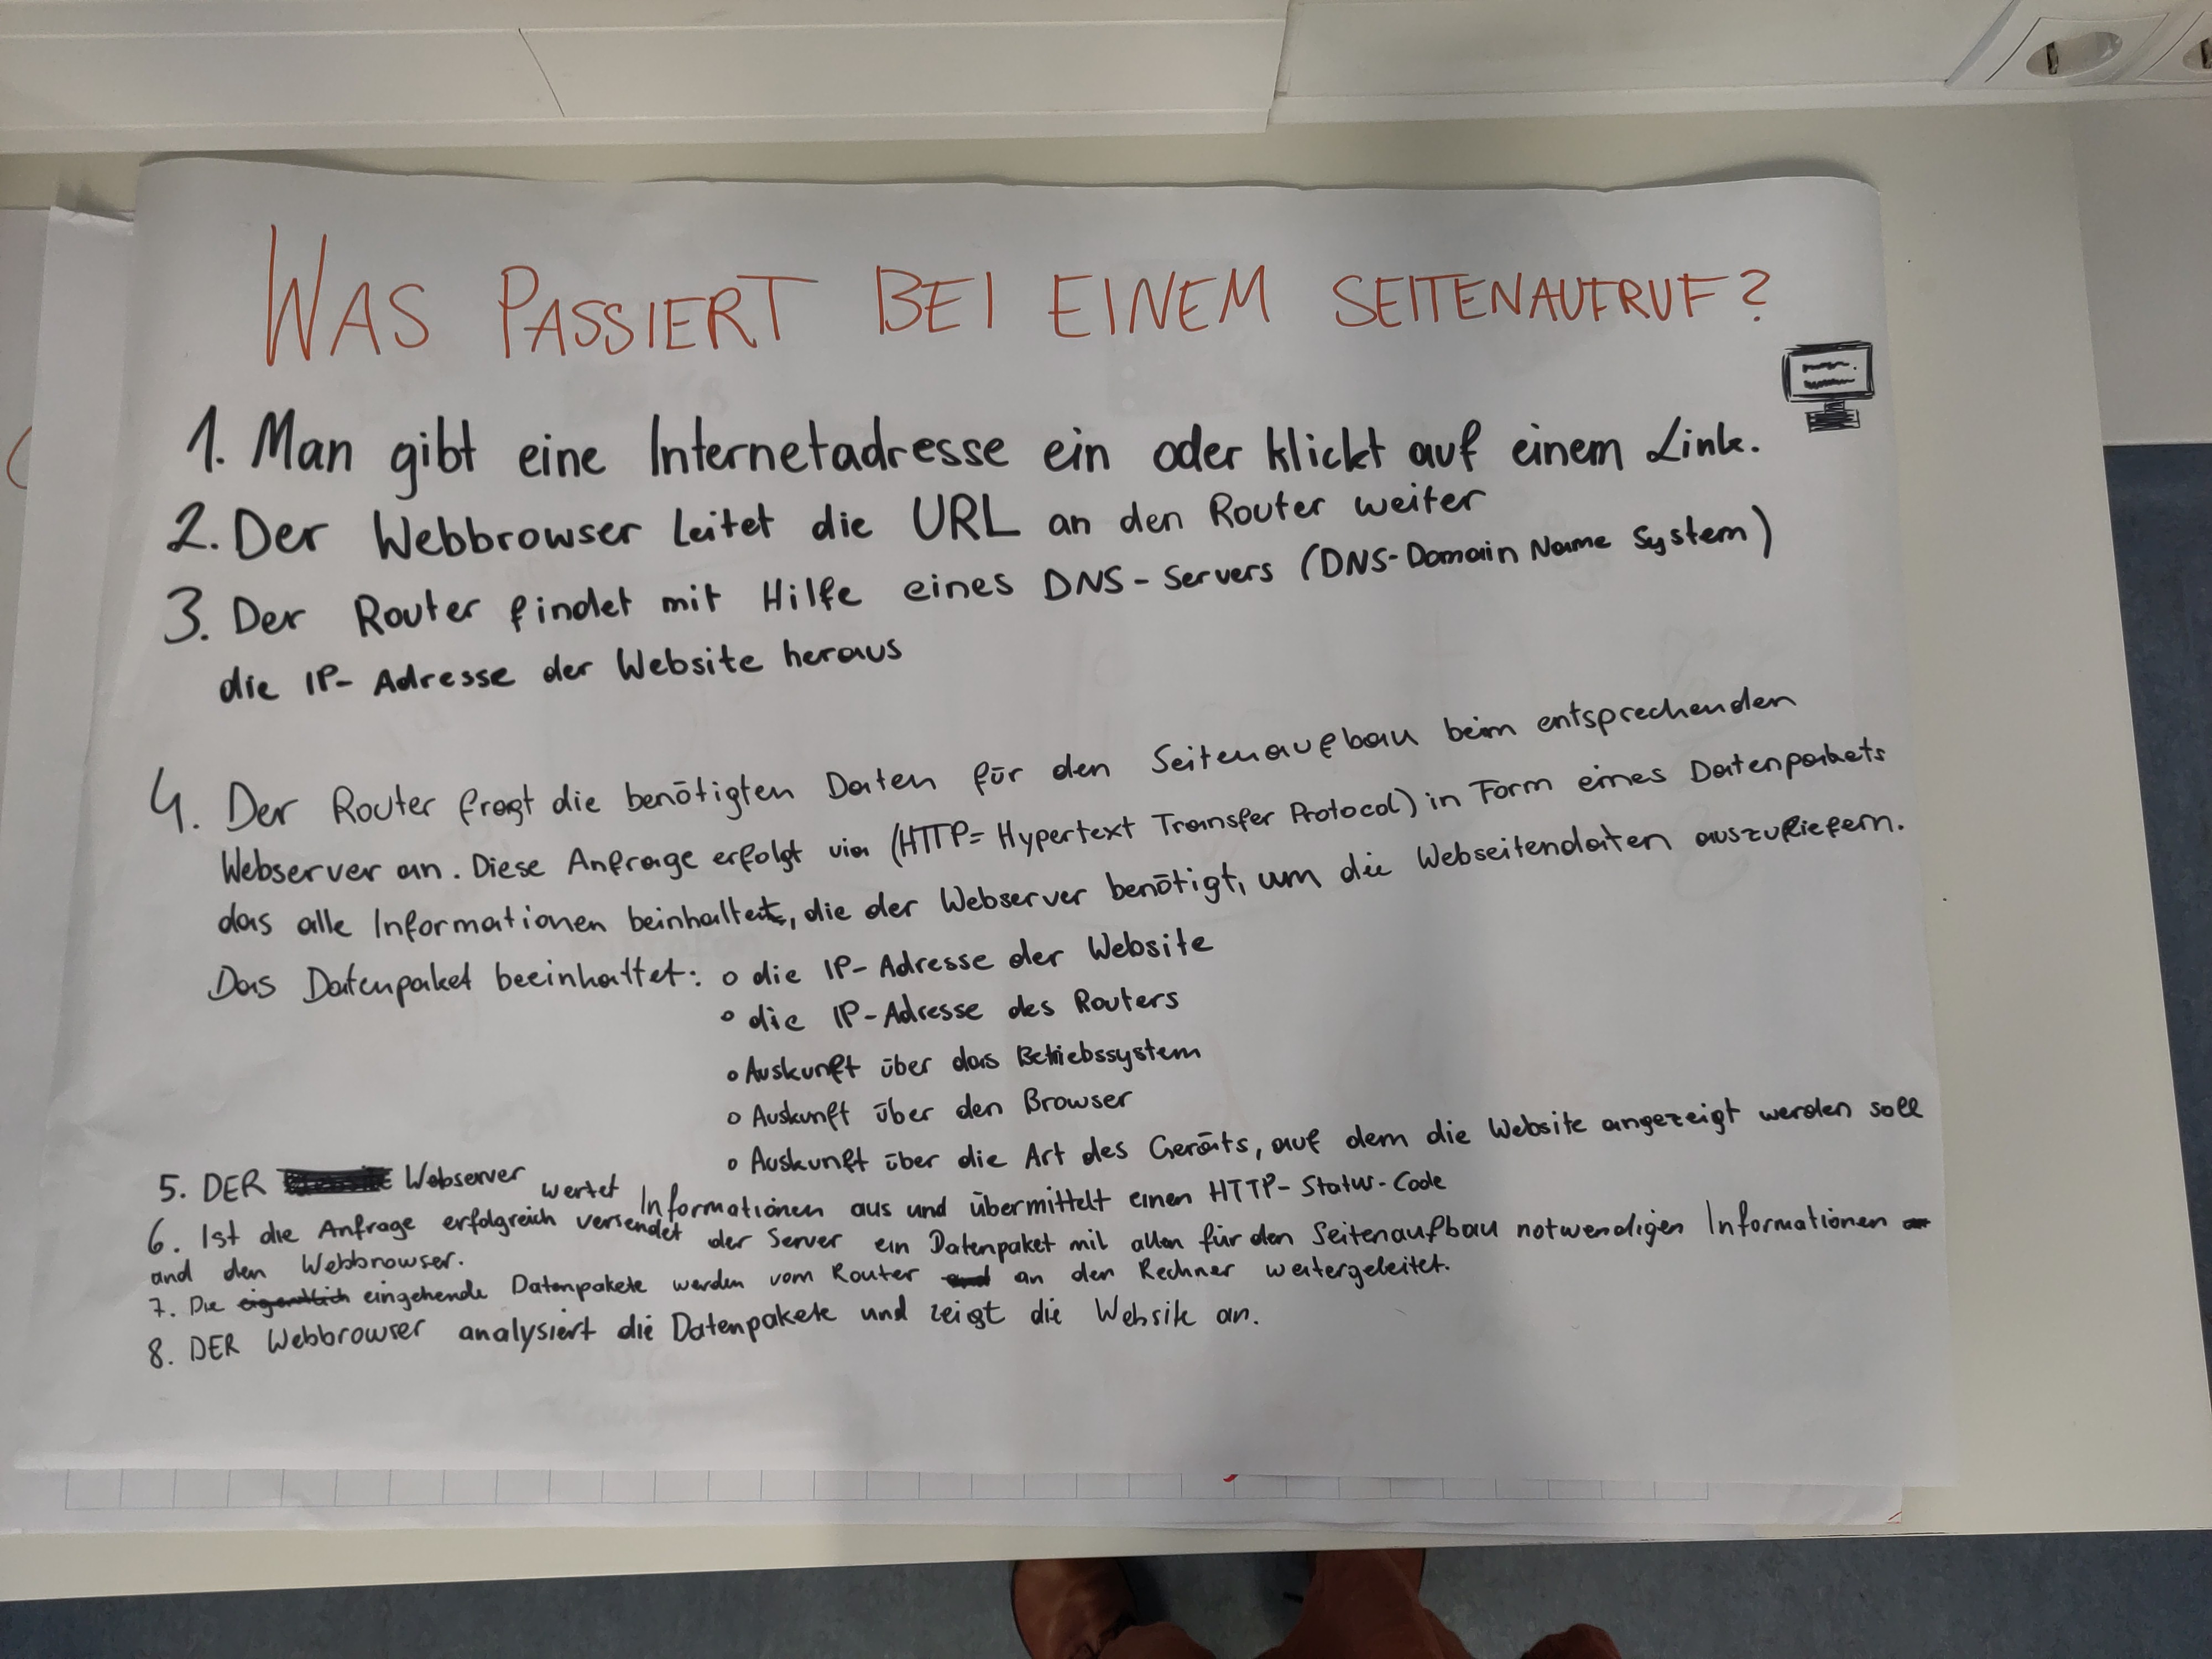 WAS PASSIERT BEI EINEM SEITENAUFRUF?
1. Man gibt eine Internetadresse ein oder klickt auf einem Link.
2. Der Webbrowser leitet die URL an den Router weiter
3. Der Router findet mit Hilfe eines DNS-Servers (DNS-Domain Name System)
die IP-Adresse der Website heraus
4. Der Router fragt die benötigten Daten für den Seitenaufbau beim entsprechenden
Webserver an. Diese Anfrage erfolgt via (HTTP= Hypertext Transfer Protocol) in Form eines Datenpakets
das alle Informationen beinhaltet, die der Webserver benötigt, um die Webseitendaten auszuliefern.
Das Datenpaket beeinhaltet: o die IP-Adresse der Website
o die IP-Adresse des Routers
o Auskunft über das Betriebssystem
o Auskunft über den Browser
o Auskunft über die Art des Geräts, auf dem die Website angezeigt werden soll
5. DER Webserver wertet Informationen aus und übermittelt einen HTTP-Status-Code
6. Ist die Anfrage erfolgreich versendet der Server ein Datenpaket mit allen für den Seitenaufbau notwendigen Informationen
and den Webbrowser.
7. Die eigentlich eingehende Datenpakete werden vom Router and an den Rechner weitergeleitet.
8. DER Webbrowser analysiert die Datenpakete und zeigt die Website an.